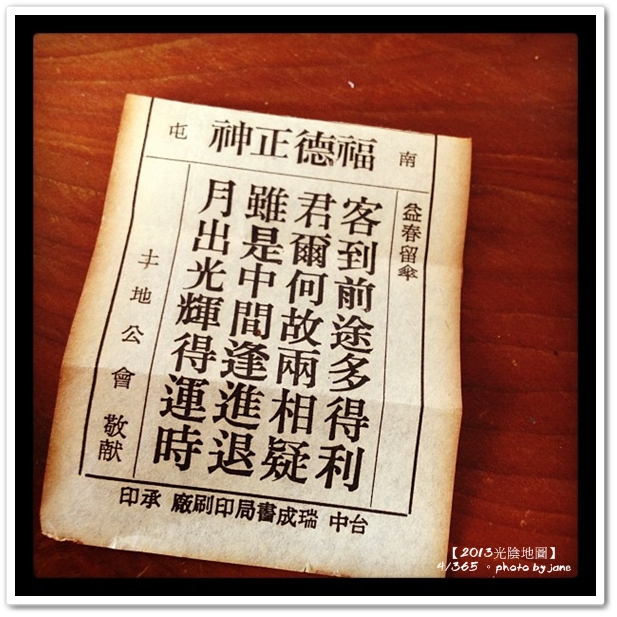 南 福德正神 屯
益春留傘
客到前途多得利
君爾何故兩相疑
雖是中間逢進退
月出光輝得運時
土地公會 敬献
台中 瑞成書局印刷廠 承印
【2013光陰地圖】
4/365 。photo by jane